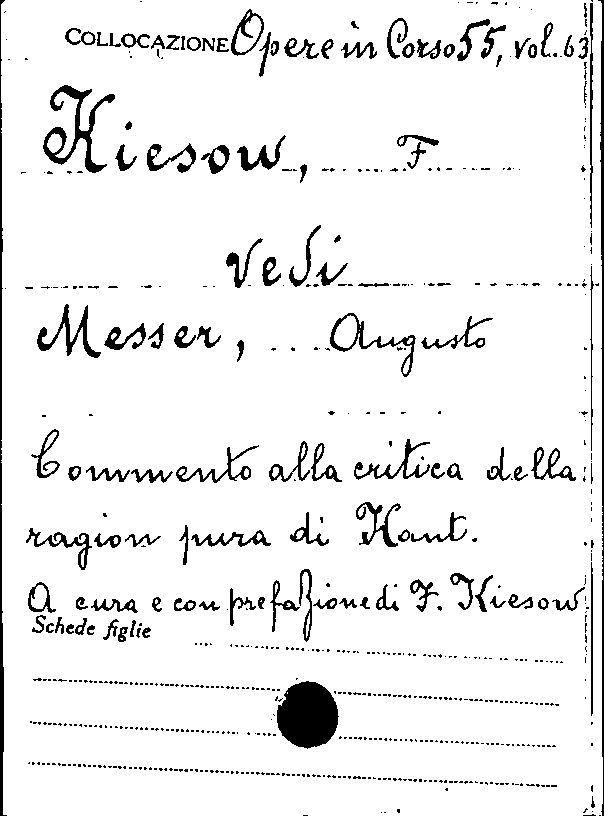 COLLOCAZIONE Opere in Corso 55, vol. 63
Kiesow, F
vedi
Messer, Augusto
Commento alla critica della
ragion pura di Kant.
A cura e con prefazione di F. Kiesow
Schede figlie